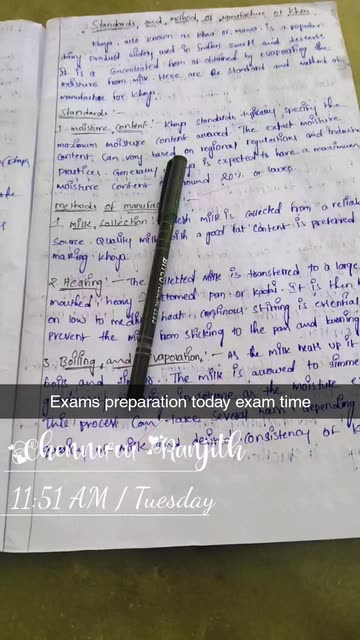 Standards, and method, of Manufacture, of Khoa.
Khoya, also known as Khoa or mawa, is a popular
dairy product widely used in Indian sweets and desserts
It is a concentrated form of obtained by evaporating the
moisture from milk. Here are the standard and method of
manufacture for Khoya.
Standards :-
1. moisture, content :- Khoya standards typically specify the
maximum moisture content allowed. The exact moisture
content can vary based on regional regulations and industry
practices. Generally is expected to have a maximum
moisture content around 20% or lower.
Methods of manufac
1. Milk, collection milk is collected from a reliable
source. Quality milk with a good fat content is preferred
making Khoya.
2. Heating :- The collected milk is transferred to a large
mouthed heavy bottomed pan or kadai. It is then
on low to medium heat. continuous stirring is essential
prevent the milk from sticking to the pan and burning
3. Boiling, and evaporation, :- As the milk heats up it
boils and The milk is allowed to simmer
in volume as the moisture
Exams preparation today exam time
This process can take several hours depending
milk and desired consistency of
Cherrwoor Ranjith
11:51 AM / Tuesday